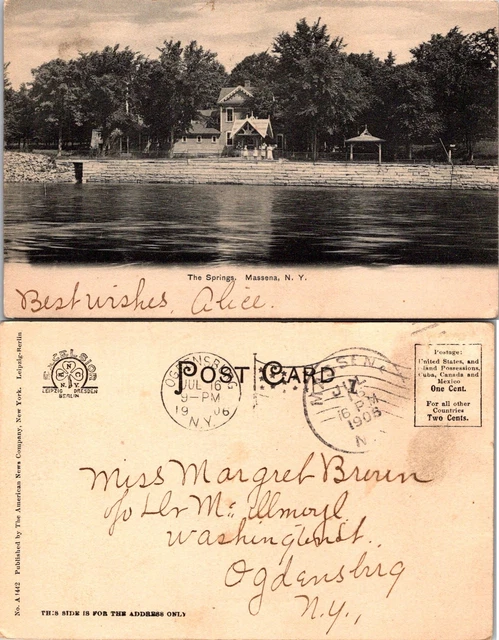 The Springs. Massena, N. Y.
Best wishes, Alice.
No. A 1442 Published by The American News Company, New York. Leipzig-Berlin
EXCELSIOR
N.Y.
LEIPZIG DRESDEN
BERLIN
POST CARD
OGDENSBURG
JUL 16
9-PM
1906
N.Y.
MASSENA
JUL
16 PM
1906
N.
Postage:
United States, and
Island Possessions,
Cuba, Canada and
Mexico
One Cent.
For all other
Countries
Two Cents.
Miss Margret
c/o Dr
Washington St.
Ogdensburg
N.Y.,
THIS SIDE IS FOR THE ADDRESS ONLY